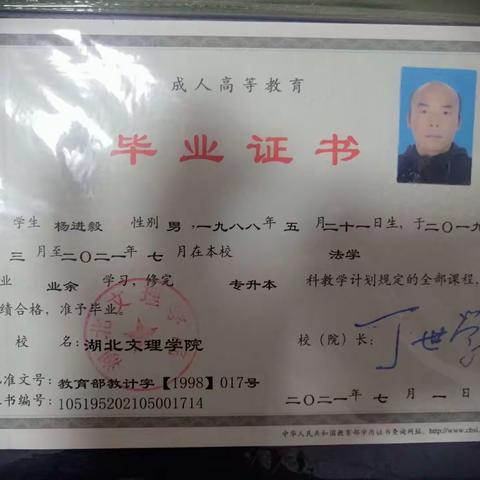 成人高等教育
毕业证书
学生 杨进毅 性别 男，一九八八年 五 月二十一日生，于二〇一九
三 月至二〇二一年 七 月在本校 法学
业 业余 学习，修完 专升本 科教学计划规定的全部课程，
绩合格，准予毕业。
校 名：湖北文理学院 校（院）长：丁世学
准文号：教育部教计字【1998】017号
书编号：105195202105001714 二〇二一年 七 月 一 日
中华人民共和国教育部学历证书查询网址：http://www.chsi.